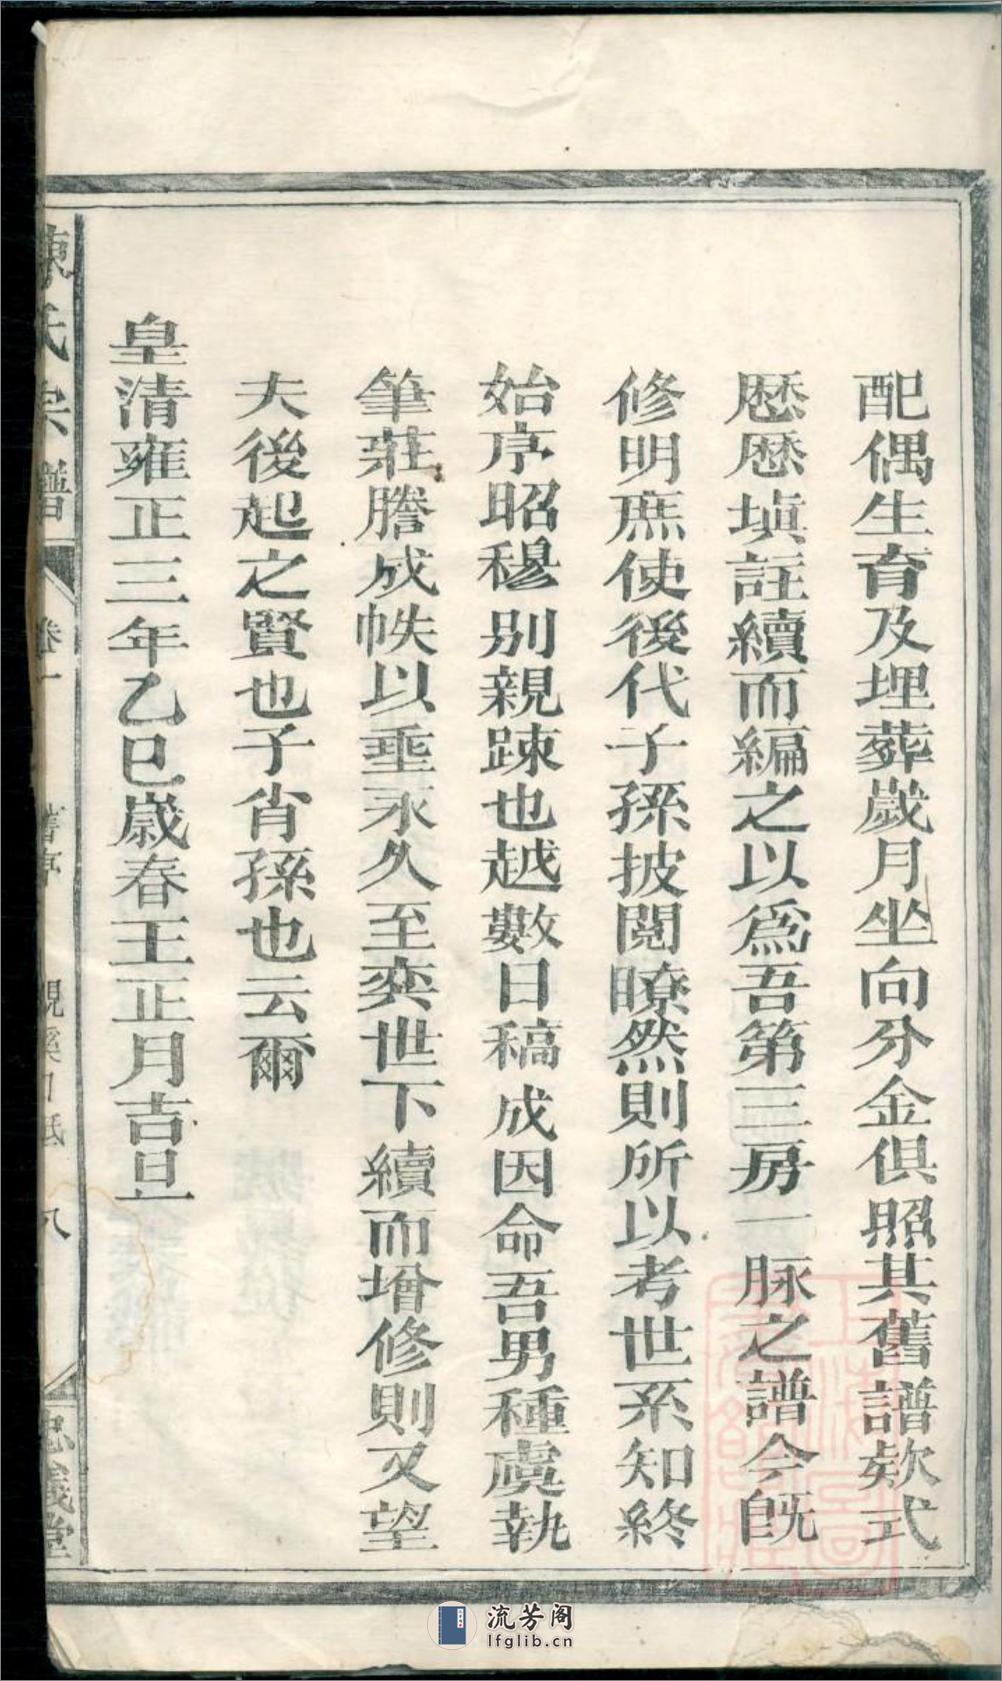 配偶生育及埋葬歲月坐向分金俱照其舊譜欵式
歴歴塡註續而編之以爲吾第三房一脉之譜今旣
修明庶使後代子孫披閲暸然則所以考世系知終
始序昭穆别親踈也越數日稿成因命吾男種虞執
筆莊謄成帙以垂永久至奕世下續而增修則又望
夫後起之賢也子肖孫也云爾
皇清雍正三年乙巳歲春王正月吉旦
陳氏宗譜
卷一
舊序
八
忠義堂
流芳阁
lfglib.cn